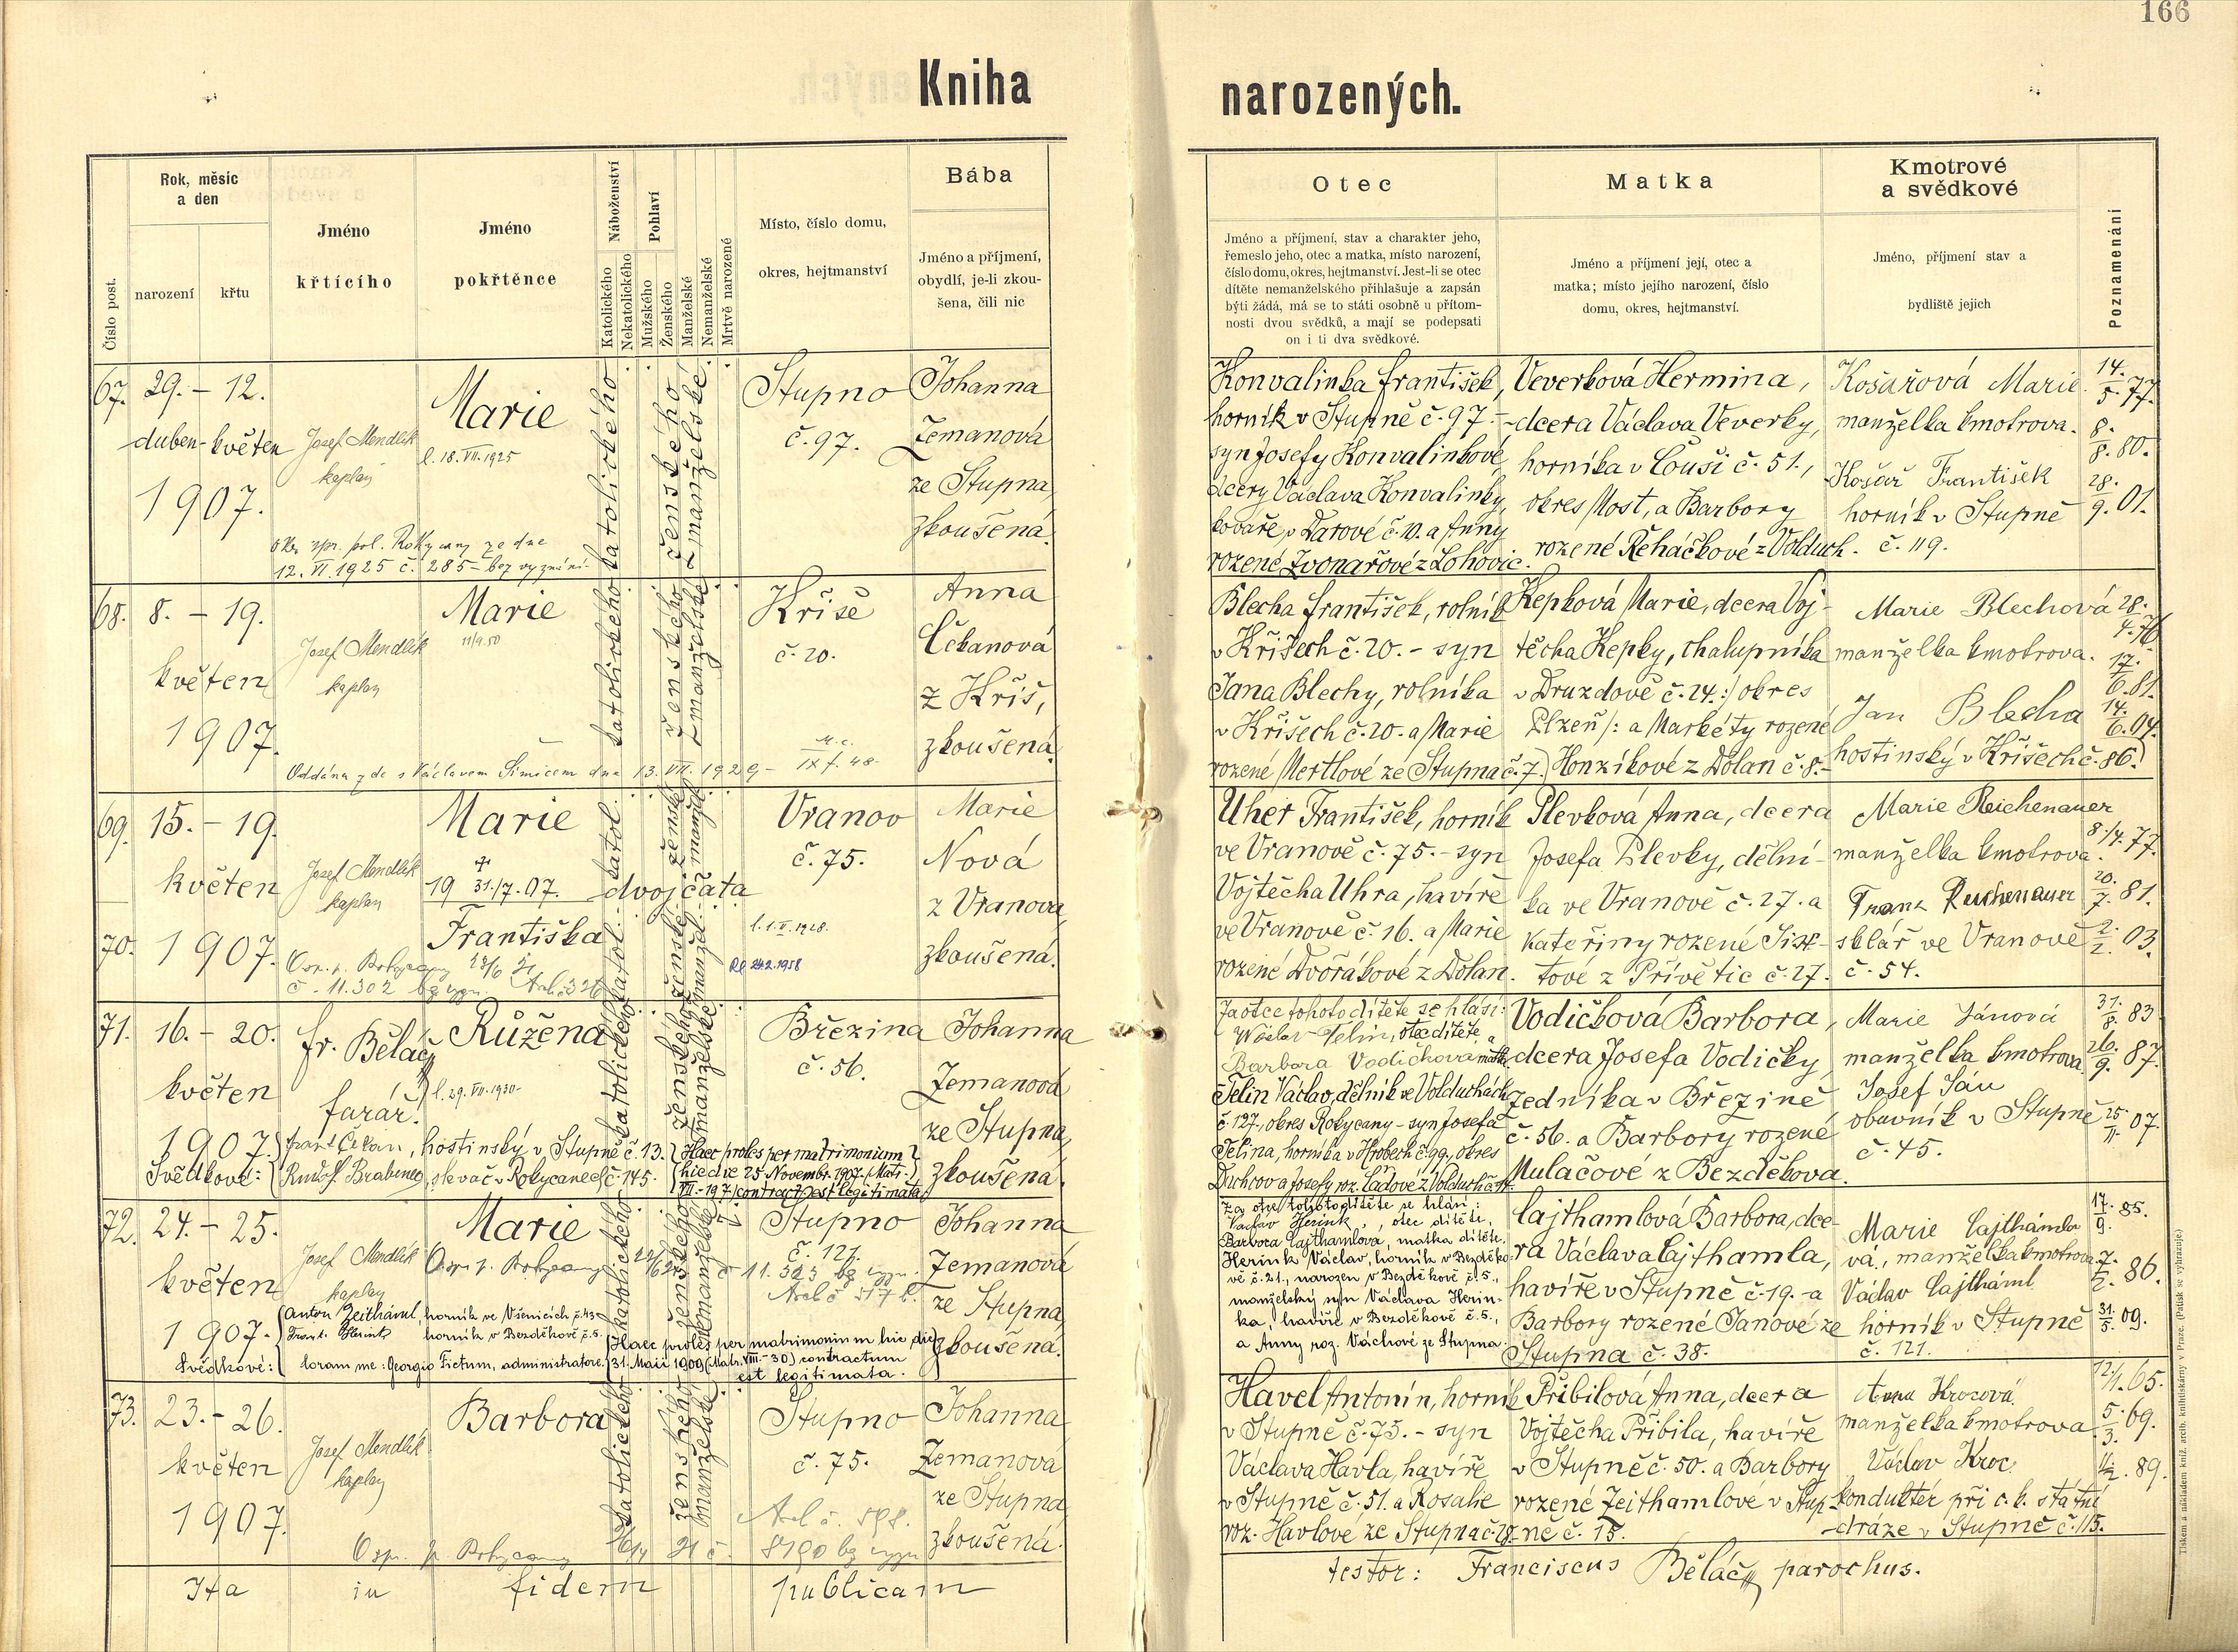 166
Kniha narozených.
Číslo post.
Rok, měsíc
a den
narození
křtu
Jméno
křtícího
Jméno
pokřtěnce
Náboženství
Katolického
Nekatolického
Pohlaví
Mužského
Ženského
Manželské
Nemanželské
Mrtvě narozené
Místo, číslo domu,
okres, hejtmanství
Bába
Jméno a příjmení,
obydlí, je-li zkou-
šena, čili nic
Otec
Jméno a příjmení, stav a charakter jeho,
řemeslo jeho, otec a matka, místo narození,
číslo domu, okres, hejtmanství. Jest-li se otec
dítěte nemanželského přihlašuje a zapsán
býti žádá, má se to státi osobně u přítom-
nosti dvou svědků, a mají se podepsati
on i ti dva svědkové.
Matka
Jméno a příjmení její, otec a
matka; místo jejího narození, číslo
domu, okres, hejtmanství.
Kmotrové
a svědkové
Jméno, příjmení stav a
bydliště jejich
Poznamenání
67. 29. - 12.
duben - květen
1907.
Josef Mendlík
kaplan
Marie
l. 18. VII. 1925
12. VI. 1925 č. 285 - bez vyznání
katolického
ženského
manželské
Stupno
č. 97.
Johanna
Zemanová
ze Stupna,
zkoušená.
Konvalinka František,
horník v Stupně č. 97. -
syn Josefy Konvalinkové,
dcery Václava Konvalinky,
kováře v Darové č. 10. a Anny
rozené Zvonařové z Lohovic.
Veverková Hermina,
dcera Václava Veverky,
horníka v Louši č. 51.,
okres Most, a Barbory
rozené Řeháčkové z Volduch.
Košařová Marie
manželka kmotrova.
Košař František
horník v Stupně
č. 119.
14./5. 77.
8./8. 80.
28./9. 01.
68. 8. - 19.
květen
1907.
Josef Mendlík
kaplan
Marie
11/9.50
Oddána zde s Václavem Šimicem dne 13. VII. 1929 -
katolického
ženského
manželské
Kříše
č. 20.
Anna
Čekanová
z Kříš,
zkoušená.
Blecha František, rolník
v Kříšech č. 20. - syn
Jana Blechy, rolníka
v Kříšech č. 20. a Marie
rozené Mertlové ze Stupna č. 7.
Kepková Marie, dcera Voj-
těcha Kepky, chalupníka
v Druzdově č. 24. :/ okres
Plzeň /: a Markéty rozené
Honzíkové z Dolan č. 8. -
Marie Blechová
manželka kmotrova.
Jan Blecha
hostinský v Kříšech č. 86.
28./4. 76
17./6. 81.
14./6. 04.
69. 15. - 19.
květen
70. 1907.
Josef Mendlík
kaplan
Marie
19 31./7. 07.
Františka
dvojčata
č. 11.302
katol.
žensk.
manžel.
Vranov
č. 75.
l. 1. V. 1928.
24.2.1958
Marie
Nová
z Vranova,
zkoušená.
Uher František, horník
ve Vranově č. 75. - syn
Vojtěcha Uhra, havíře
ve Vranově č. 16. a Marie
rozené Dvořákové z Dolan.
Plevková Anna, dcera
Josefa Plevky, dělní-
ka ve Vranově č. 27. a
Kateřiny rozené
tové z Přívětic č. 27.
Marie Reichenauer
manželka kmotrova.
Franz Reichenauer
sklář ve Vranově
č. 54.
8./4. 77.
20./7. 81.
2./2. 03.
71. 16. - 20.
květen
1907.
Fr. Běláč
farář.
Růžena
l. 29. VII. 1930 -
Svědkové:
Frant. Čekan, hostinský v Stupně č. 13.
Rudolf Brabenec, slevač v Rokycanech č. 145.
Haec proles per matrimonium
hic die 25 Novembr. 1907. (Matr.
VII. - 197) contract. est legitimata
katolického
ženského
manželské
Březina
č. 56.
Johanna
Zemanová
ze Stupna,
zkoušená.
Za otce tohoto dítěte se hlásí:
Václav Telín, otec dítěte, a
Barbora Vodičková matka
Telín Václav, dělník ve Volduchách
č. 127., okres Rokycany - syn Josefa
Telína, horníka v Hrobech č. 99., okres
Duchcov a Josefy roz. Ládové z Volduch
Vodičková Barbora,
dcera Josefa Vodičky,
zedníka v Březině
č. 56. a Barbory rozené
Mulačové z Bezděkova.
Marie Jánová
manželka kmotrova
Josef Ján
obuvník v Stupně
č. 45.
31./8. 83
26./9. 87.
25./11. 07.
72. 24. - 25.
květen
1907.
Josef Mendlík
kaplan
Marie
č 11.523
Svědkové:
Anton Zeithaml, horník ve Všenicích č. 43
Frant. Herink horník v Bezděkově č. 5.
Coram me: Georgio Fictum, administratore.
Haec proles per matrimonium hic die
31. Maii 1909 (Matr. VIII. - 30) contractum
est legitimata.
katolického
ženského
nemanželské
Stupno
č. 121.
Johanna
Zemanová
ze Stupna,
zkoušená.
Za otce tohoto dítěte se hlásí:
Václav Herink, otec dítěte,
Barbora Cajthamlová, matka dítěte.
Herink Václav, horník v Bezděko-
vě č. 21., narozen v Bezděkově č. 5.,
manželský syn Václava Herin-
ka, havíře v Bezděkově č. 5.,
a Anny roz. Váchové ze Stupna.
Cajthamlová Barbora, dce-
ra Václava Cajthamla,
havíře v Stupně č. 19. - a
Barbory rozené Janové ze
Stupna č. 38.
Marie Cajthamlo
vá, manželka kmotrova
Václav Cajthaml
horník v Stupně
č. 121.
17./9. 85.
7./2. 86.
31./5. 09.
73. 23. - 26.
květen
1907.
Josef Mendlík
kaplan
Barbora
katolického
ženského
manželské
Stupno
č. 75.
Johanna
Zemanová
ze Stupna,
zkoušená.
Havel Antonín, horník
v Stupně č. 75. - syn
Václava Havla, havíře
v Stupně č. 51. a Rosalie
roz. Havlové ze Stupna
Přibilová Anna, dcera
Vojtěcha Přibila, havíře
v Stupně č. 50. a Barbory
rozené Zeithamlové v Stup-
ně č. 15.
Anna Krocová
manželka kmotrova
Václav Kroc
konduktér při c. k. státní
dráze v Stupně č. 115.
12/1. 65.
5./3. 69.
89.
Ita in fidem publicam
testor: Franciscus Běláč, parochus.
Tiskem a nákladem kníž. arcib. knihtiskárny v Praze. (Patisk se vyhrazuje.)